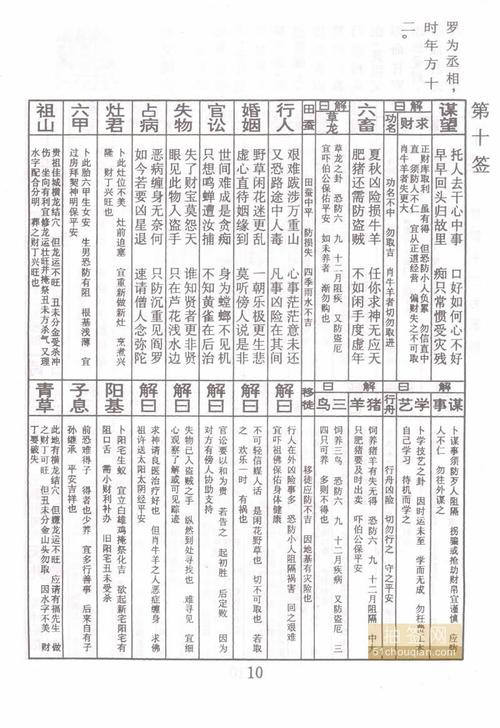 罗为丞相，
时年方十
二。
第十签
谋望
托人去干心中事 口好如何心不好
早早回头归故里 痴只常惯受灾残
解曰
求财
正财库取利 虽有得 但恐防小人负累 勿信直中
直 须防人不仁 宜从正道经营 偏财失之不可取
肖牛羊者失更大
功名
功名不中 勿取吉 肖牛羊者切勿取进
六畜
夏秋凶险损牛羊 任你求神无应天
肥猪还需防盗贼 不如闲手度虚年
解曰
草龙
草龙之卦 恐防六 九 十二月阻疾 又防盗厄
宜吓伯公保佑平安 如未养者 渐勿购也
田蚕
田蚕中平 防损失 四季雨水不吉
行人
艰难跋涉万重山 心事茫茫意未还
又恐路途中人毒 凡事凶险在其间
婚姻
野草闲花迷更乱 一朝乐极更生悲
虚心直待姻缘到 莫听傍人说是非
官讼
世间难成是贪痴 身为螳螂不见机
只想鸣蝉遭汝捕 不知黄雀在后治
失物
失了财宝莫怨天 谁知贤者更非贤
眼见此物人盗手 只在芦花浅水边
占病
恶病缠身无奈何 只防沉重见阎罗
如今若要凶星退 速请僧人念弥陀
灶君
卜此灶位不美 灶前迫塞 宜重新做新灶 烹煮兴
隆 财丁兴旺也
六甲
卜此胎六甲生女安 生男恐防有阻 根基浅薄 宜
过房拜契神明保平安
祖山
贵祖佳城横龙结穴 但龙运不旺 丑未分金受杀冲
伤 坐向有利宜修龙运壮旺并掩祭丑未方杀气 又理
水字配合分明 葬之财丁兴旺也
解曰
谋事
卜谋事须防歹人阻隔 拐骗或抢劫财帛宜谨慎 应防
人不仁 勿往外谋之
学艺
卜学技艺之卦 因时运未至 学而无成 勿枉费工
自己学习 待机而学之
行舟
行舟凶险 切勿行之 守之平安
解曰
猪羊
饲养猪羊有失无得 恐防六 九 十二月阻隔 中
只肥猪要及时出卖 吓伯公保平安
三鸟
饲养三鸟 恐防六 九 十二月疾病 又防盗厄 三
四只可养 多则不得也
移徙
移徙应防不吉 因地基有灾险也
解曰
行人在外凶险事多 恐防小人阻隔祸害 回之艰难
宜吓祖佛保佑身体健康
解曰
不可轻信媒人话 是闲花野草也 切不可取也 若取
之 欢乐一时 有祸也
解曰
官讼要以和为贵 若告之 起初胜 后定败 因为
对方有傍人协助支持
解曰
失物己入盗贼之手 纵然到处寻找也 难寻见 宜细
心观察了解或可见踪迹
解曰
求神请良医治疗好也 但肖牛羊之人恶症缠身 求佛
祖许送太阳太阴经平安
阳基
卜阳宅生蚁 宜立白雄鸡掩祭化吉 欲起新宅阳宅有
阻口舌 需小财利补办 旧阳宅丑未受杀
子息
前恐难得子 得者也少养 宜多行善事 后来自有子
孙继承 平安吉祥也
青草
此地有横龙结穴 但嫌龙运不旺 应请有福先生 做
之财丁可旺 但丑未分金山头勿取 因水字不美 财
丁要破失
10
抽签网
51chouqian.com